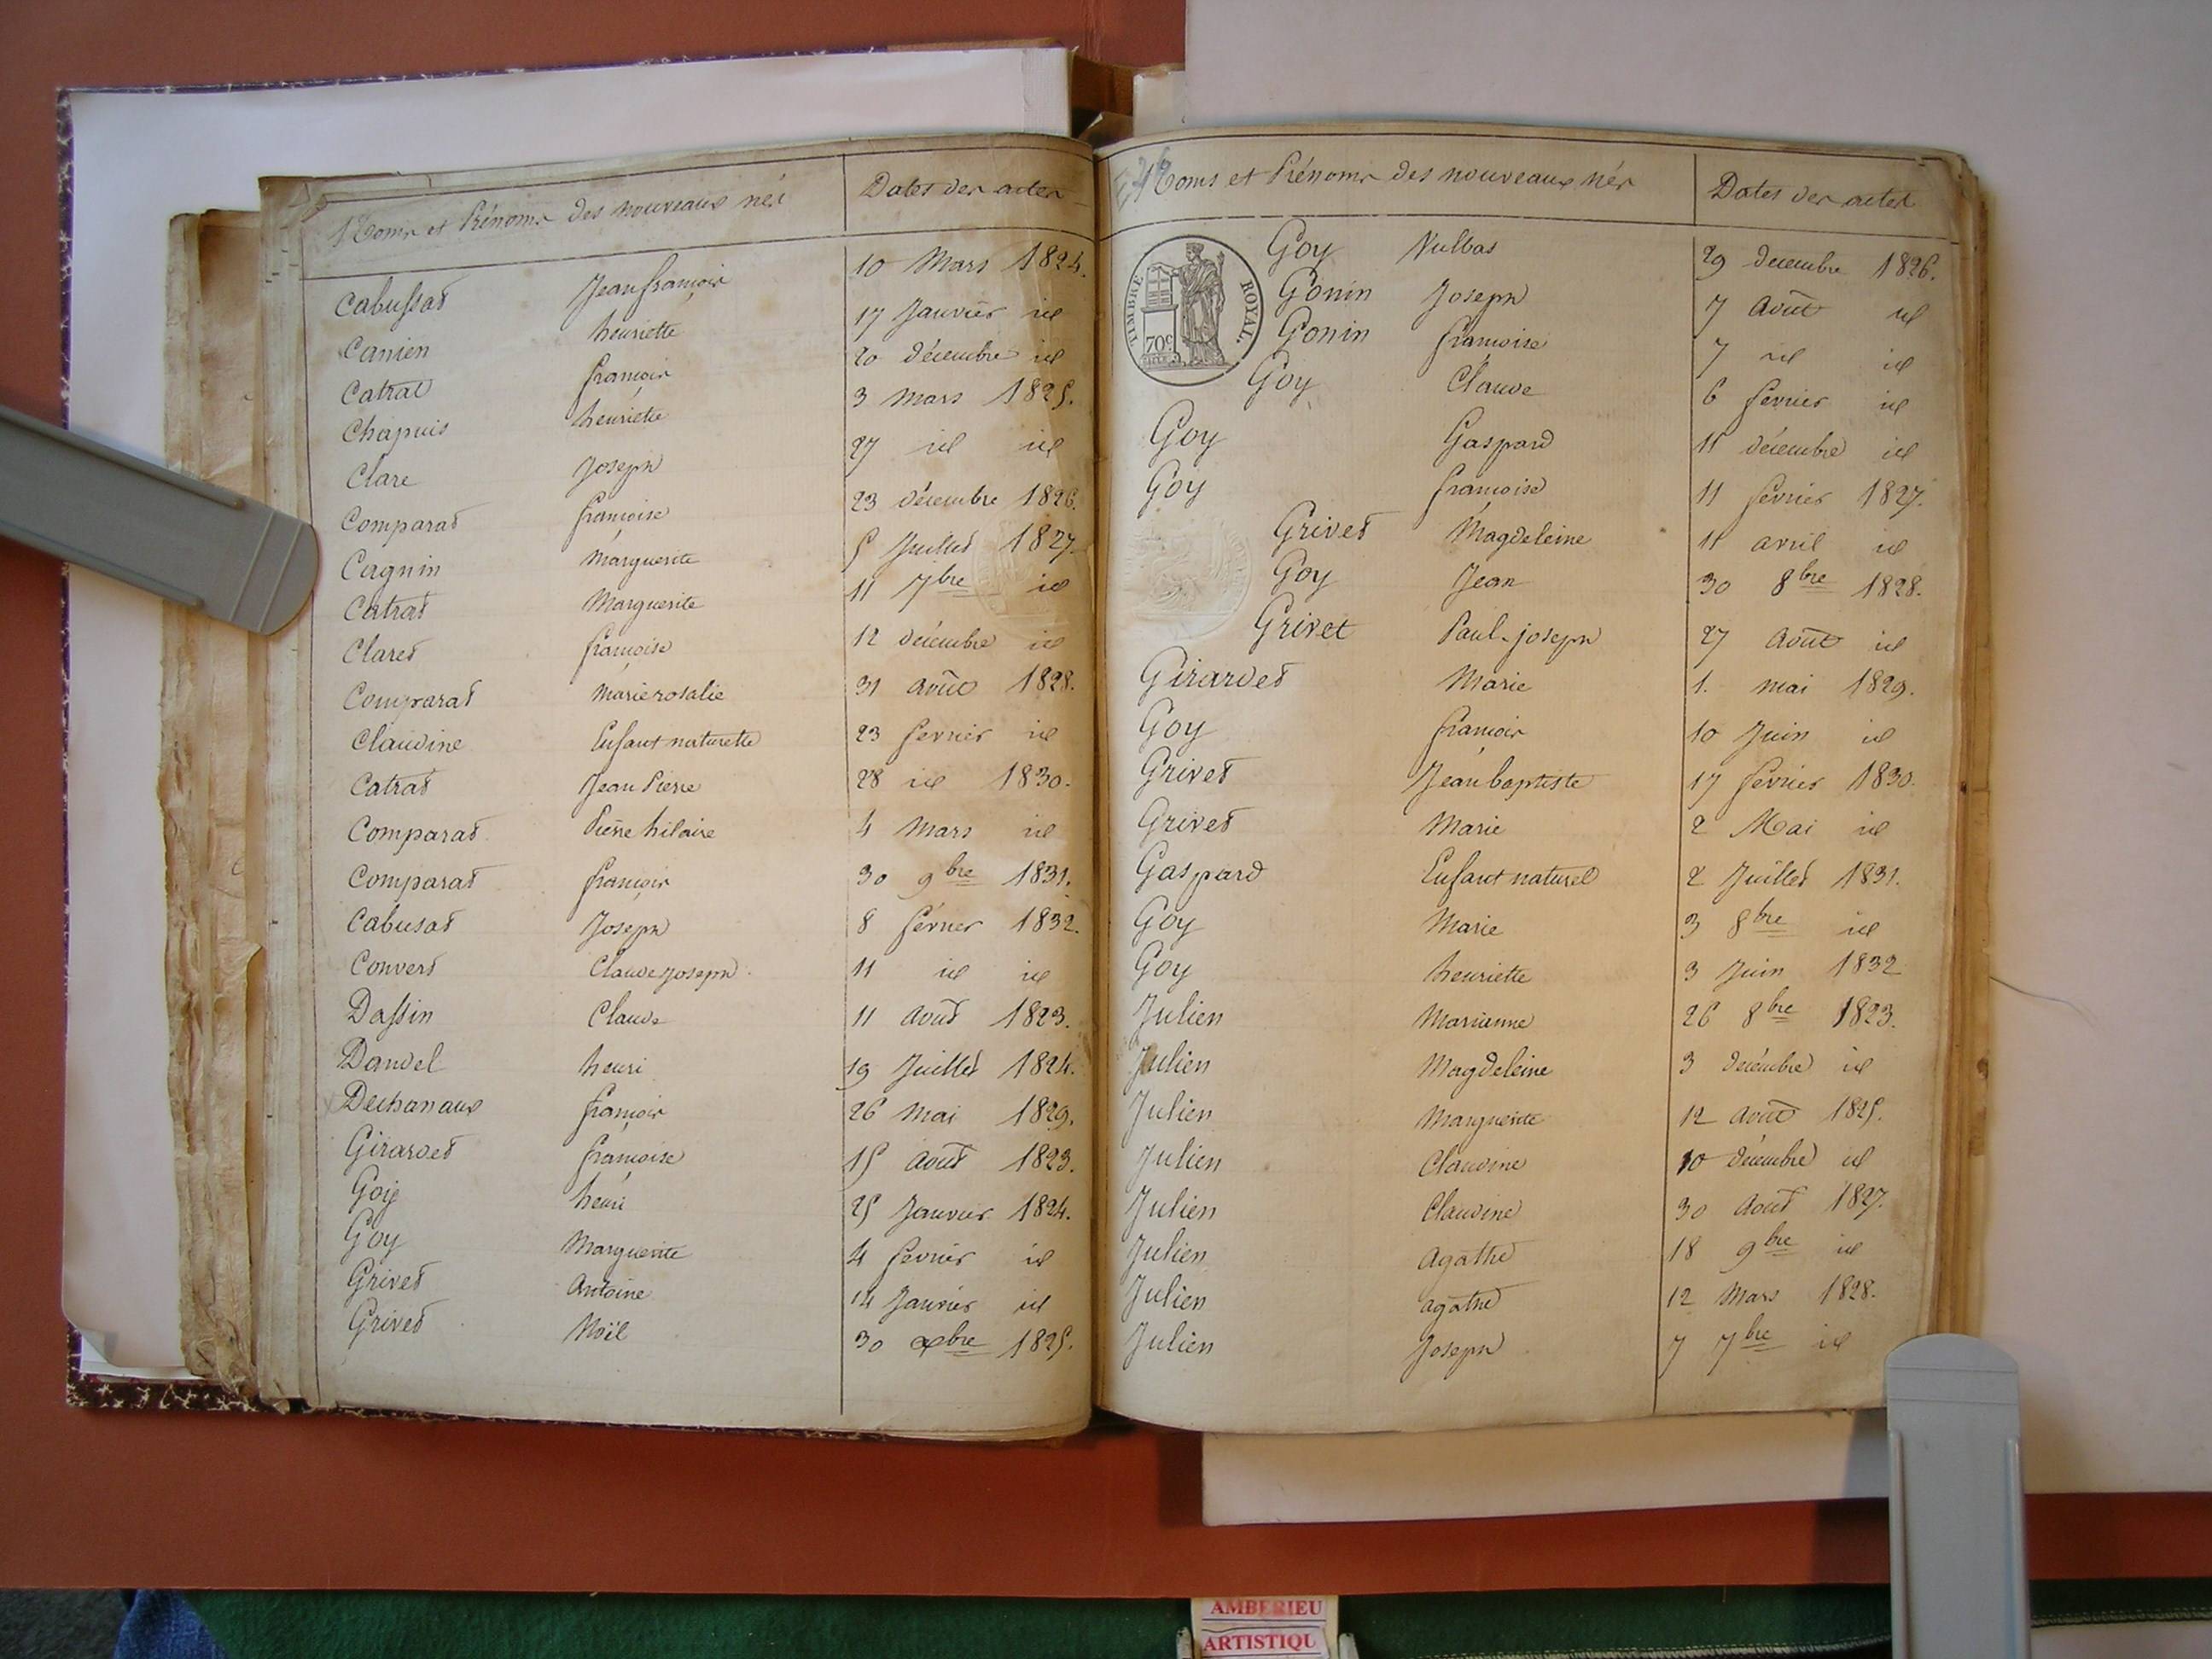 Noms et Prénoms des nouveaux nés Dates des actes
Cabussat Jean françois 10 Mars 1824.
Canien henriette 17 Janvier id
Catrat françois 20 décembre id
Chapuis henriette 3 Mars 1825.
Clare Joseph 27 id id
Comparat françoise 23 décembre 1826.
Cagnin Marguerite 5 Juillet 1827.
Catrat Marguerite 11 7bre id
Claret françoise 12 décembre id
Comparat Marie rosalie 31 août 1828.
Claudine Enfant naturelle 23 fevrier id
Catrat Jean Pierre 28 id 1830.
Comparat Pierre hilaire 4 Mars id
Comparat françois 30 9bre 1831.
Cabusat Joseph 8 février 1832.
Convert Claude Joseph 11 id id
Dassin Claude 11 Août 1823.
Dandel henri 19 Juillet 1824.
Dechanaux françois 26 Mai 1829.
Girardet françoise 15 Août 1823.
Goy henri 25 Janvier 1824.
Goy Marguerite 4 fevrier id
Grivet Antoine 14 Janvier id
Grivet Noël 30 xbre 1825.
Noms et Prénoms des nouveaux nés Dates des actes
TIMBRE ROYAL.
70c
Goy Vulbas 29 decembre 1826.
Gonin Joseph 7 Août id
Gonin françoise 7 id id
Goy Claude 6 fevrier id
Goy Gaspard 11 décembre id
Goy françoise 11 fevrier 1827.
Grivet Magdeleine 11 avril id
Goy Jean 30 8bre 1828.
Grivet Paul-joseph 27 Août id
Girardet Marie 1. mai 1829.
Goy françois 10 Juin id
Grivet Jean baptiste 17 fevrier 1830.
Grivet Marie 2 Mai id
Gaspard Enfant naturel 2 Juillet 1831.
Goy Marie 3 8bre id
Goy henriette 3 Juin 1832
Julien Marianne 26 8bre 1823.
Julien Magdeleine 3 decémbre id
Julien Marguerite 12 Août 1825.
Julien Claudine 10 décembre id
Julien Claudine 30 Août 1827.
Julien Agathe 18 9bre id
Julien agathe 12 Mars 1828.
Julien Joseph 7 7bre id
AMBERIEU
ARTISTIQU